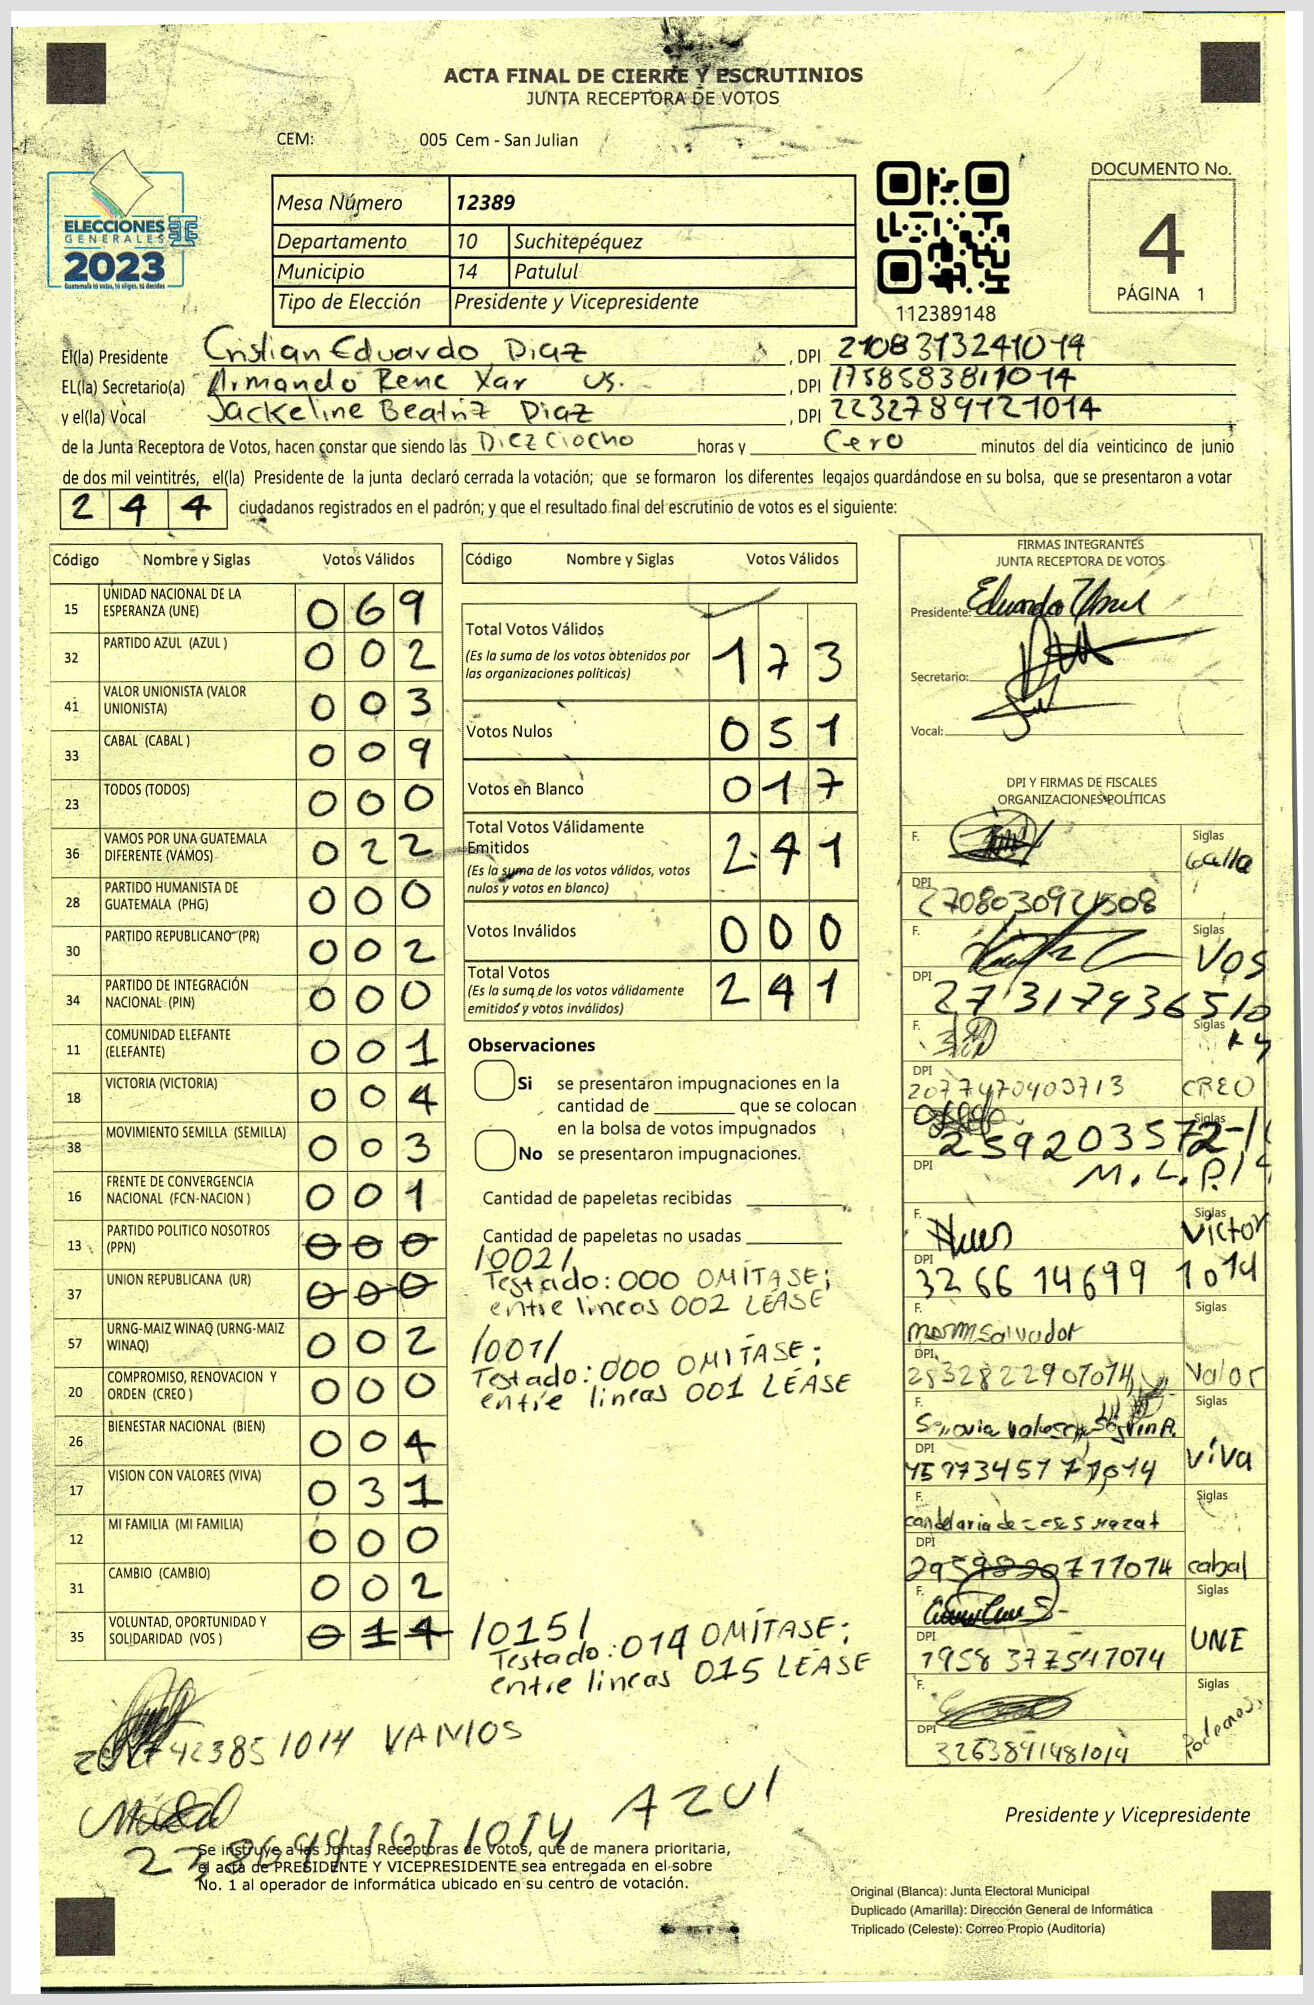 ACTA FINAL DE CIERRE Y ESCRUTINIOS
JUNTA RECEPTORA DE VOTOS
CEM: 005 Cem - San Julian
DOCUMENTO No.
4
PÁGINA 1
ELECCIONES
GENERALES
2023
Guatemala tú votas, tú eliges, tú decides
Mesa Número 12389
Departamento 10 Suchitepéquez
Municipio 14 Patulul
Tipo de Elección Presidente y Vicepresidente
112389148
El(la) Presidente Cristian Eduardo Diaz , DPI 2108313241014
EL(la) Secretario(a) Armando Rene Xar us. , DPI 1758583811014
y el(la) Vocal Jackeline Beatriz Diaz , DPI 2232789121014
de la Junta Receptora de Votos, hacen constar que siendo las Diez Ciocho horas y Cero minutos del día veinticinco de junio
de dos mil veintitrés, el(la) Presidente de la junta declaró cerrada la votación; que se formaron los diferentes legajos guardándose en su bolsa, que se presentaron a votar
244 ciudadanos registrados en el padrón; y que el resultado final del escrutinio de votos es el siguiente:
Código Nombre y Siglas Votos Válidos
15 UNIDAD NACIONAL DE LA ESPERANZA (UNE) 069
32 PARTIDO AZUL (AZUL ) 002
41 VALOR UNIONISTA (VALOR UNIONISTA) 003
33 CABAL (CABAL ) 009
23 TODOS (TODOS) 000
36 VAMOS POR UNA GUATEMALA DIFERENTE (VAMOS) 022
28 PARTIDO HUMANISTA DE GUATEMALA (PHG) 000
30 PARTIDO REPUBLICANO (PR) 002
34 PARTIDO DE INTEGRACIÓN NACIONAL (PIN) 000
11 COMUNIDAD ELEFANTE (ELEFANTE) 001
18 VICTORIA (VICTORIA) 004
38 MOVIMIENTO SEMILLA (SEMILLA) 003
16 FRENTE DE CONVERGENCIA NACIONAL (FCN-NACION ) 001
13 PARTIDO POLITICO NOSOTROS (PPN) 000
37 UNION REPUBLICANA (UR) 000
57 URNG-MAIZ WINAQ (URNG-MAIZ WINAQ) 002
20 COMPROMISO, RENOVACION Y ORDEN (CREO ) 000
26 BIENESTAR NACIONAL (BIEN) 004
17 VISION CON VALORES (VIVA) 031
12 MI FAMILIA (MI FAMILIA) 000
31 CAMBIO (CAMBIO) 002
35 VOLUNTAD, OPORTUNIDAD Y SOLIDARIDAD (VOS ) 014
Código Nombre y Siglas Votos Válidos
Total Votos Válidos 173
(Es la suma de los votos obtenidos por
las organizaciones políticas)
Votos Nulos 051
Votos en Blanco 017
Total Votos Válidamente
Emitidos 241
(Es la suma de los votos válidos, votos
nulos y votos en blanco)
Votos Inválidos 000
Total Votos 241
(Es la suma de los votos válidamente
emitidos y votos inválidos)
Observaciones
Si se presentaron impugnaciones en la
cantidad de ________ que se colocan
en la bolsa de votos impugnados
No se presentaron impugnaciones.
Cantidad de papeletas recibidas
Cantidad de papeletas no usadas
/002/
Testado: 000 OMÍTASE;
entre lineas 002 LEASE
/001/
Testado: 000 OMITASE;
entre lineas 001 LEASE
/015/
Testado: 014 OMÍTASE;
entre lineas 015 LEASE
FIRMAS INTEGRANTES
JUNTA RECEPTORA DE VOTOS
Presidente:
Secretario:
Vocal:
DPI Y FIRMAS DE FISCALES
ORGANIZACIONES POLÍTICAS
F. Siglas
DPI 2708030921508
F. Siglas VOS
DPI 27317936510
F. Siglas
DPI 2077470403713 CREO
Siglas
259203572-1
DPI M.L.P.
F. Siglas Victor
DPI 3266 14699 1014
F. Siglas
Salvador
DPI 2832822907014 Valor
F. Siglas
DPI viva
F. Siglas
candelaria de
DPI 2959820717074 cabal
F. Siglas
DPI 1958 377547074 UNE
F. Siglas
DPI 3263891481014 Podemos
42385 1014 VAMOS
AZUL
Presidente y Vicepresidente
Se instruye a las Juntas Receptoras de Votos, que de manera prioritaria,
el acta de PRESIDENTE Y VICEPRESIDENTE sea entregada en el sobre
No. 1 al operador de informática ubicado en su centro de votación.
Original (Blanca): Junta Electoral Municipal
Duplicado (Amarilla): Dirección General de Informática
Triplicado (Celeste): Correo Propio (Auditoría)